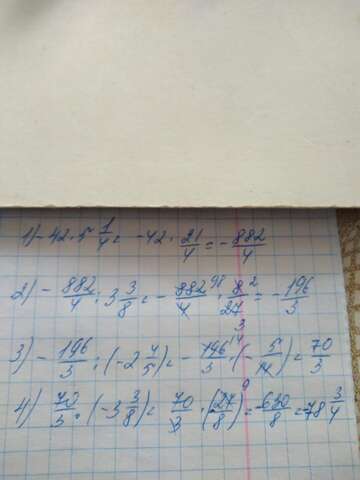 1) -42 · 5 1/4 = -42 · 21/4 = - 882/4
2) - 882/4 : 3 3/8 = - 882/4 98 · 8/27 2 3 = - 196/3
3) - 196/3 : (-2 4/5) = - 196/3 14 · (- 5/14) = 70/3
4) 70/3 · (-3 3/8) = 70/3 · (27/8) 9 = -630/8 = -78 3/4